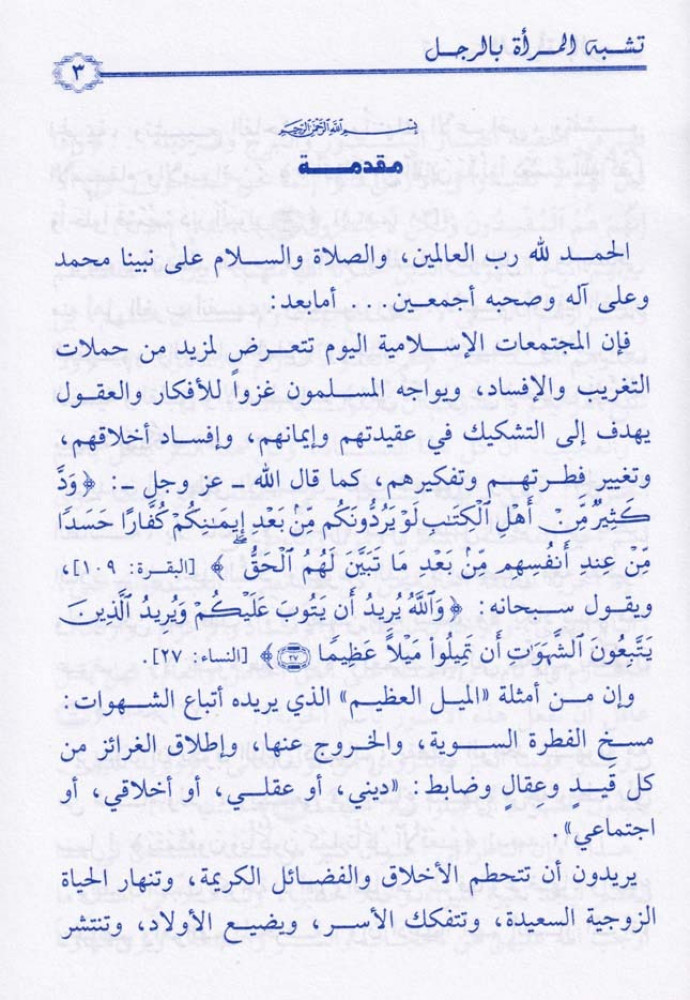 تشبه المرأة بالرجل
٣
بسم الله الرحمن الرحيم
مقدمة
الحمد لله رب العالمين، والصلاة والسلام على نبينا محمد
وعلى آله وصحبه أجمعين.... أمابعد:
فإن المجتمعات الإسلامية اليوم تتعرض لمزيد من حملات
التغريب والإفساد، ويواجه المسلمون غزواً للأفكار والعقول
يهدف إلى التشكيك في عقيدتهم وإيمانهم، وإفساد أخلاقهم،
وتغيير فطرتهم وتفكيرهم، كما قال الله ـ عز وجل ـ: ﴿وَدَّ
كَثِيرٌ مِّنْ أَهْلِ ٱلْكِتَٰبِ لَوْ يَرُدُّونَكُم مِّنۢ بَعْدِ إِيمَٰنِكُمْ كُفَّارًا حَسَدًا
مِّنْ عِندِ أَنفُسِهِم مِّنۢ بَعْدِ مَا تَبَيَّنَ لَهُمُ ٱلْحَقُّ ۖ﴾ [البقرة: ١٠٩]،
ويقول سبحانه: ﴿وَٱللَّهُ يُرِيدُ أَن يَتُوبَ عَلَيْكُمْ وَيُرِيدُ ٱلَّذِينَ
يَتَّبِعُونَ ٱلشَّهَوَٰتِ أَن تَمِيلُوا۟ مَيْلًا عَظِيمًا ٢٧﴾ [النساء: ٢٧].
وإن من أمثلة «الميل العظيم» الذي يريده أتباع الشهوات:
مسخ الفطرة السوية، والخروج عنها، وإطلاق الغرائز من
كل قيدٍ وعِقال وضابط: «ديني، أو عقلي، أو أخلاقي، أو
اجتماعي».
يريدون أن تتحطم الأخلاق والفضائل الكريمة، وتنهار الحياة
الزوجية السعيدة، وتتفكك الأسر، ويضيع الأولاد، وتنتشر